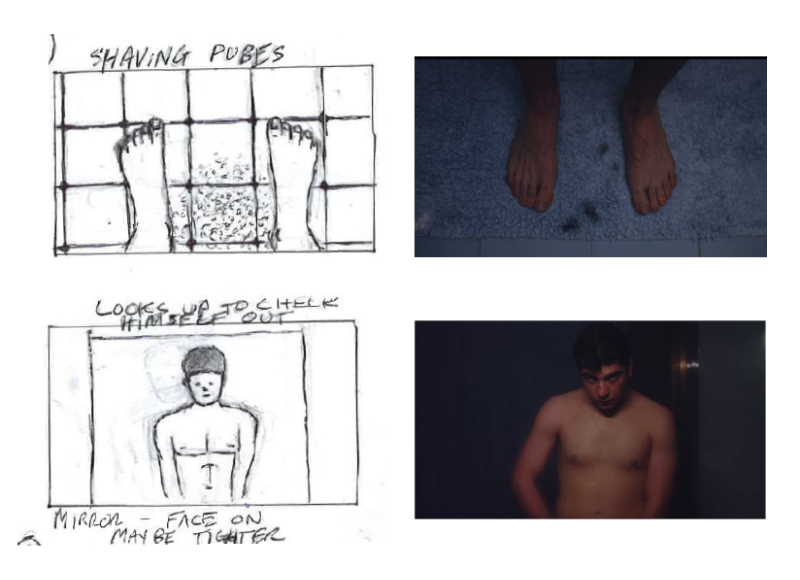 SHAVING PUBES
LOOKS UP TO CHECK
HIMSELF OUT
MIRROR - FACE ON
MAYBE TIGHTER